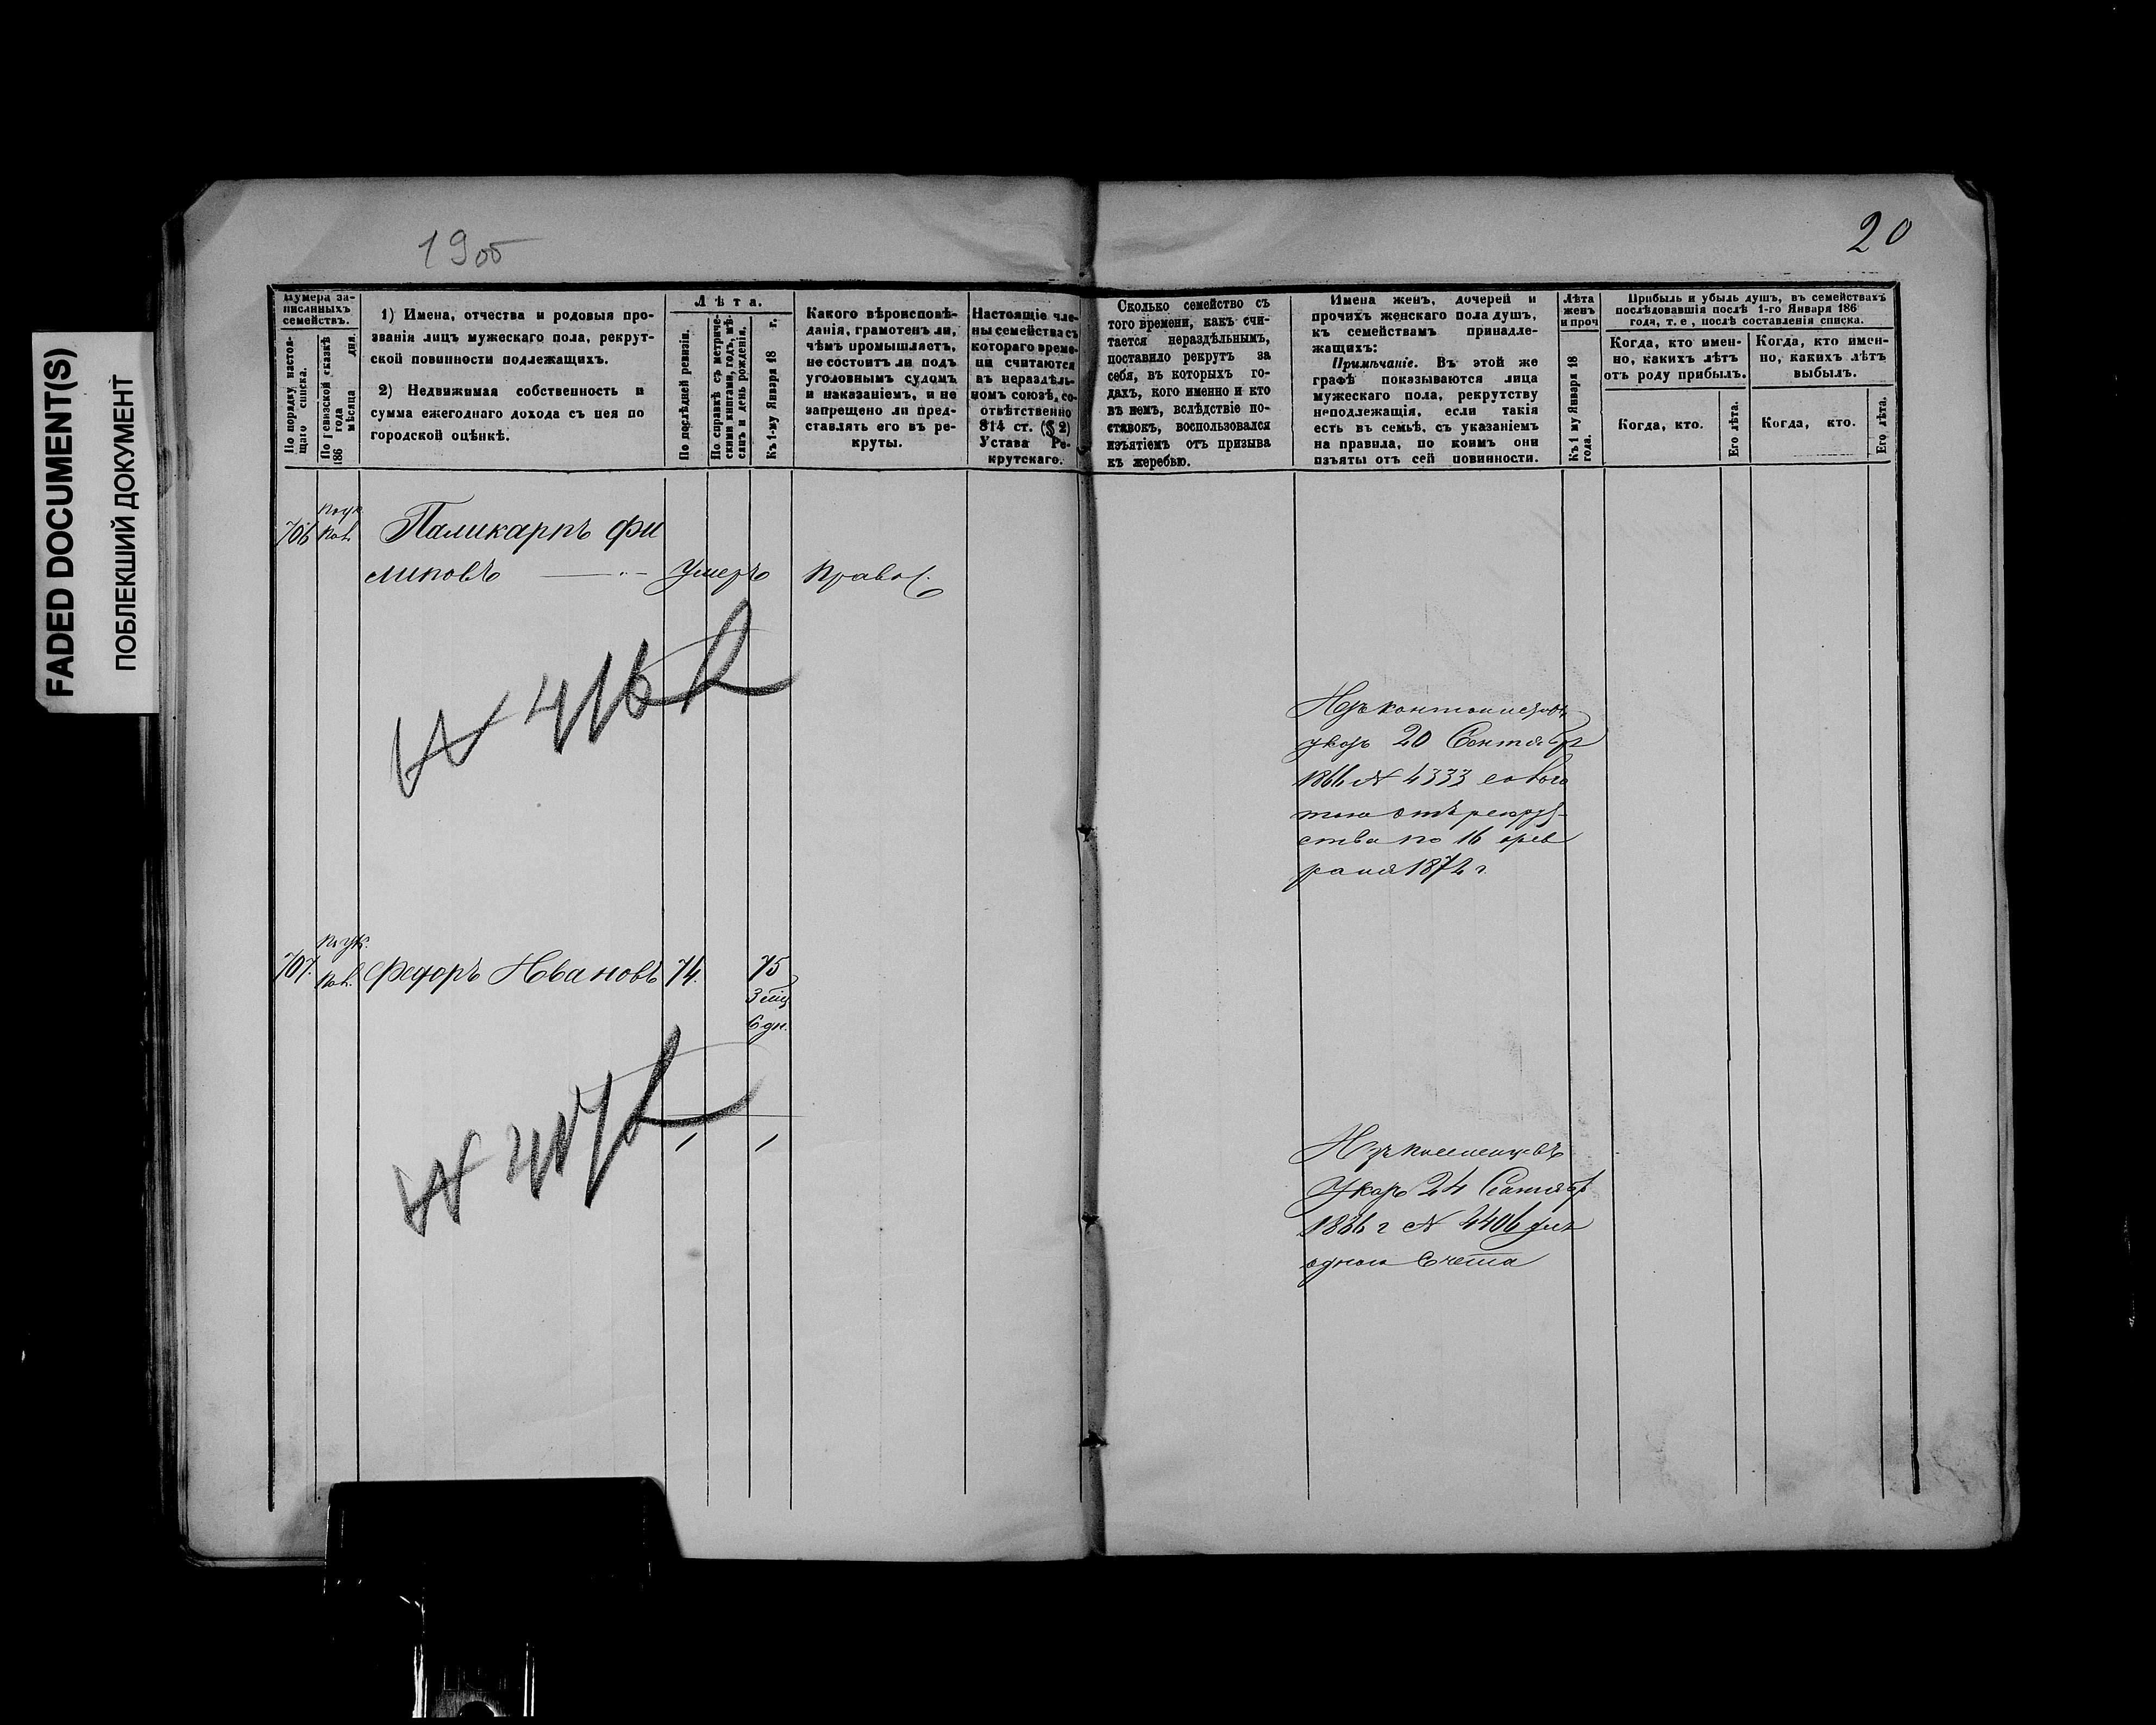 FADED DOCUMENT(S)
ПОБЛЕКШИЙ ДОКУМЕНТ
19об
20
Нумера за-
писанныхъ
семействъ.
По порядку настоя-
щаго списка.
По ревизской сказкѣ
186 года мѣсяца дня.
1) Имена, отчества и родовыя про-
званія лицъ мужескаго пола, рекрут-
ской повинности подлежащихъ.
2) Недвижимая собственность и
сумма ежегоднаго дохода съ нея по
городской оцѣнкѣ.
Лѣта.
По послѣдней ревизіи.
По справкѣ съ метриче-
скими книгами, годъ, мѣ-
сяцъ и день рожденія.
Къ 1-му Января 18 г.
Какого вѣроисповѣ-
данія, грамотенъ ли,
чѣмъ промышляетъ,
не состоитъ ли подъ
уголовнымъ судомъ
и наказаніемъ, и не
запрещено ли пред-
ставлять его въ ре-
круты.
Настоящіе чле-
ны семейства съ
котораго време-
ни считаются
въ нераздѣль-
номъ союзѣ, со-
отвѣтственно
814 ст. (§ 2)
Устава Ре-
крутскаго.
Сколько семейство съ
того времени, какъ счи-
тается нераздѣльнымъ,
поставило рекрутъ за
себя, въ которыхъ го-
дахъ, кого именно и кто
въ немъ, вслѣдствіе по-
ставокъ, воспользовался
изъятіемъ отъ призыва
къ жеребью.
Имена женъ, дочерей и
прочихъ женскаго пола душъ,
къ семействамъ принадле-
жащихъ:
Примѣчаніе. Въ этой же
графѣ показываются лица
мужескаго пола, рекрутству
неподлежащія, если такія
есть въ семьѣ, съ указаніемъ
на правила, по коимъ они
изъяты отъ сей повинности.
Лѣта
женъ
и проч
Къ 1 му Января 18
года.
Прибыль и убыль душъ, въ семействахъ
послѣдовавшія послѣ 1-го Января 186
года, т. е., послѣ составленія списка.
Когда, кто имен-
но, какихъ лѣтъ
отъ роду прибылъ.
Когда, кто имен-
но, какихъ лѣтъ
выбылъ.
Когда, кто.
Его лѣта.
Когда, кто.
Его лѣта.
706 Паликарпъ Фи
липовъ Умеръ Правос.
N 416
Изъ кантонистовъ
указъ 20 Сентября
1866 N 4333
отъ рекрут-
ства по 16 фев
раля 1872 г.
707. Федоръ Ивановъ 74. 75
3 мц
6 дн.
N
1 1
Указъ 24 Сентябр
1866 г N 4406 для
одного счета